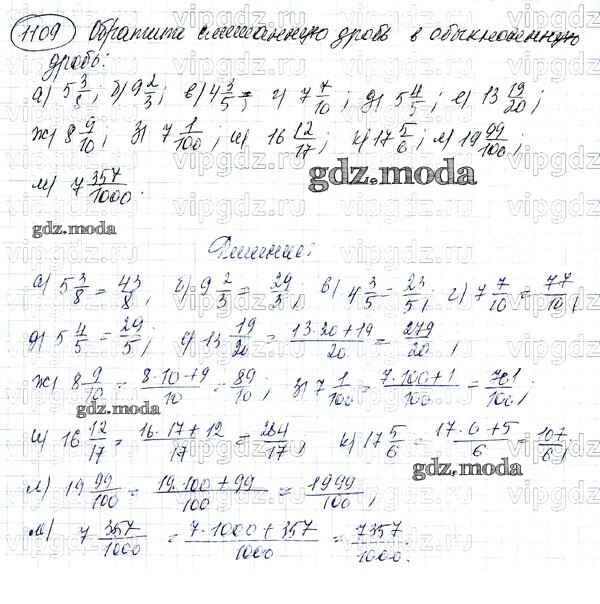 1109 Обратите смешанную дробь в обыкновенную
дробь:
а) 5 3/8; б) 9 2/3; в) 4 3/5; г) 7 7/10; д) 5 4/5; е) 13 19/20;
ж) 8 9/10; з) 7 1/100; и) 16 12/17; к) 17 5/6; л) 19 99/100;
м) 7 357/1000.
gdz.moda
gdz.moda
Решение:
а) 5 3/8 = 43/8; б) 9 2/3 = 29/3; в) 4 3/5 = 23/5; г) 7 7/10 = 77/10;
д) 5 4/5 = 29/5; е) 13 19/20 = 13·20+19/20 = 279/20;
ж) 8 9/10 = 8·10+9/10 = 89/10; з) 7 1/100 = 7·100+1/100 = 701/100;
gdz.moda
и) 16 12/17 = 16·17+12/17 = 284/17; к) 17 5/6 = 17·6+5/6 = 107/6;
gdz.moda
л) 19 99/100 = 19·100+99/100 = 1999/100;
м) 7 357/1000 = 7·1000+357/1000 = 7357/1000.
vipgdz.ru